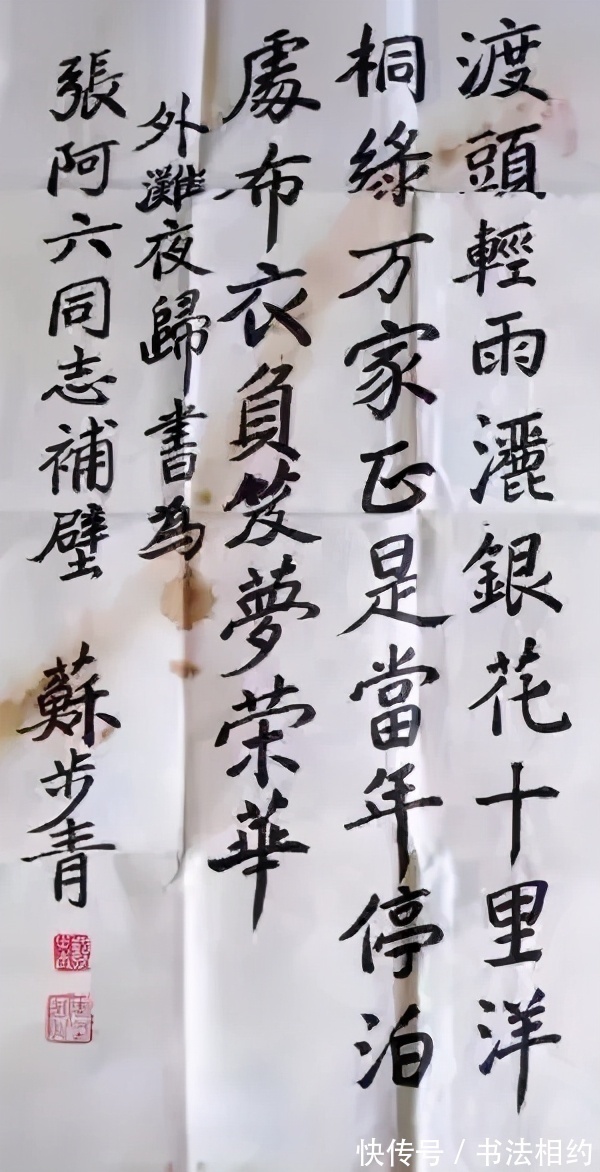 渡頭輕雨灑銀花十里洋
桐綠万家正是當年停泊
處布衣負笈夢荣華
外灘夜歸書為
張阿六同志補壁
蘇步青
快传号/书法相约